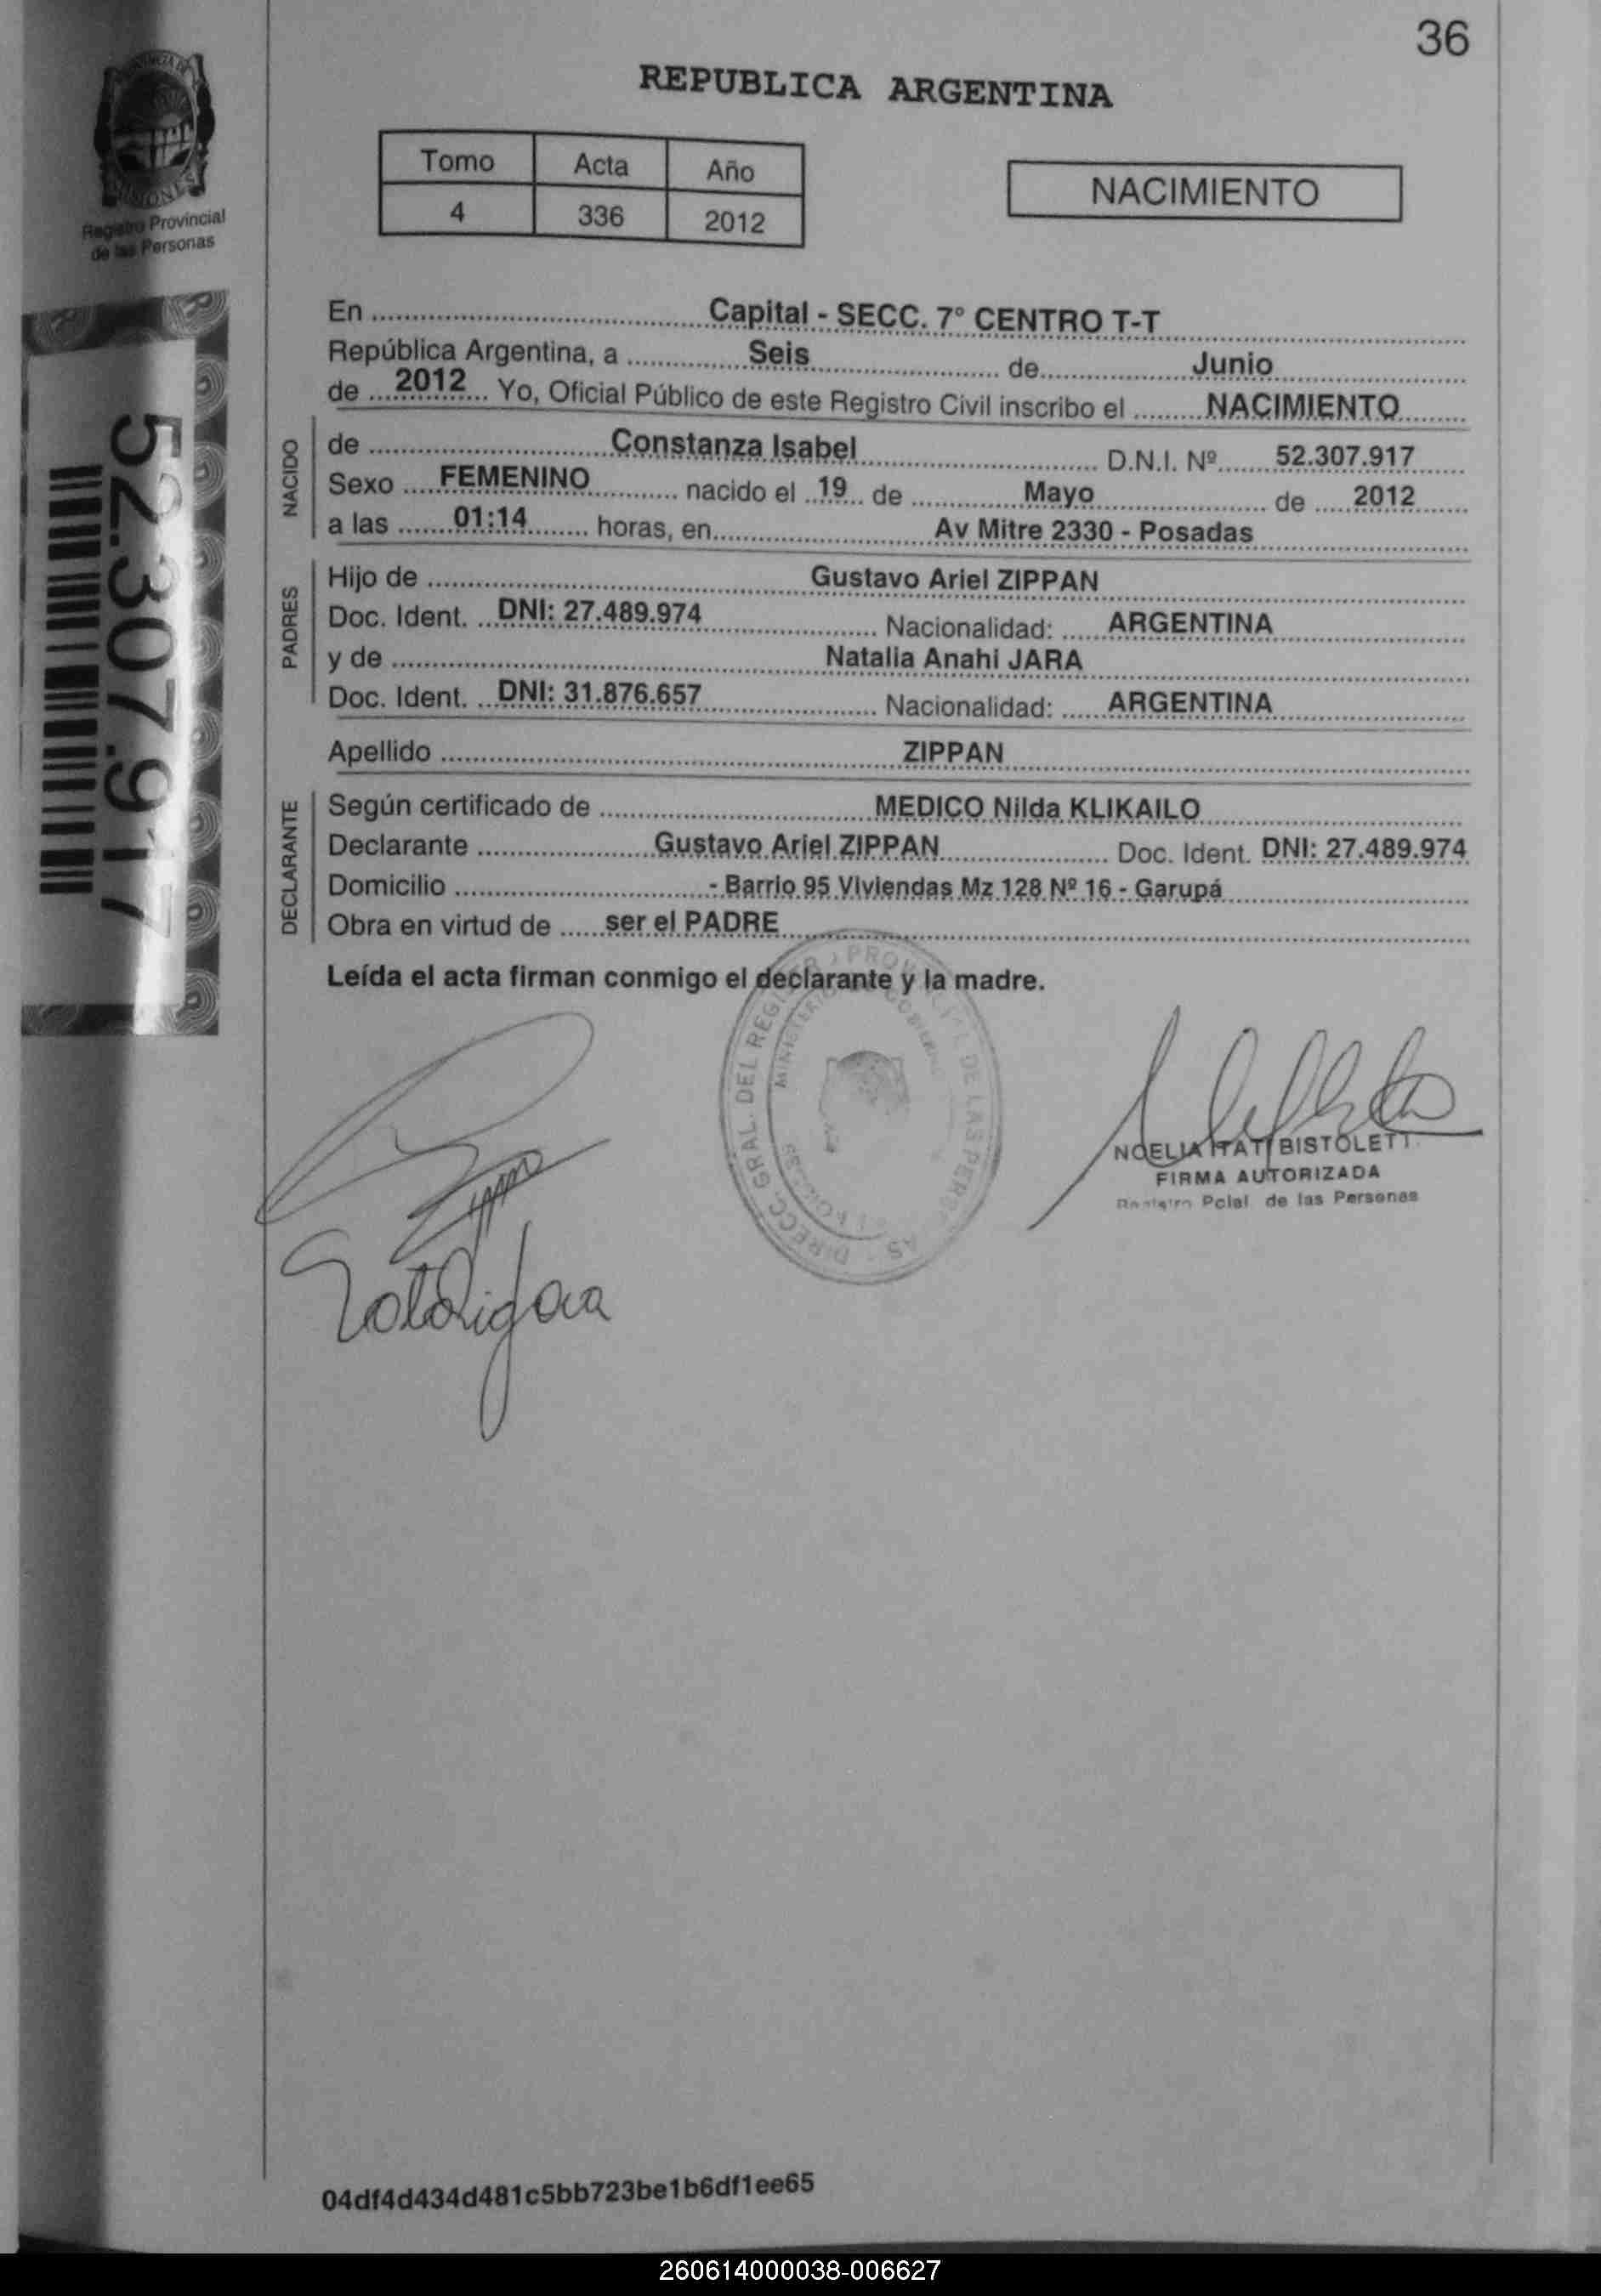 36
REPUBLICA ARGENTINA
Tomo Acta Año
4 336 2012
NACIMIENTO
Registro Provincial
de las Personas
52.307.917
En Capital - SECC. 7° CENTRO T-T
República Argentina, a Seis de Junio
de 2012 Yo, Oficial Público de este Registro Civil inscribo el NACIMIENTO
NACIDO
de Constanza Isabel D.N.I. Nº 52.307.917
Sexo FEMENINO nacido el 19 de Mayo de 2012
a las 01:14 horas, en Av Mitre 2330 - Posadas
PADRES
Hijo de Gustavo Ariel ZIPPAN
Doc. Ident. DNI: 27.489.974 Nacionalidad: ARGENTINA
y de Natalia Anahi JARA
Doc. Ident. DNI: 31.876.657 Nacionalidad: ARGENTINA
Apellido ZIPPAN
DECLARANTE
Según certificado de MEDICO Nilda KLIKAILO
Declarante Gustavo Ariel ZIPPAN Doc. Ident. DNI: 27.489.974
Domicilio - Barrio 95 Viviendas Mz 128 Nº 16 - Garupá
Obra en virtud de ser el PADRE
Leída el acta firman conmigo el declarante y la madre.
DIRECC. GRAL. DEL DE LAS
NOELIA ITATI
FIRMA AUTORIZADA
Registro Pcial de las Personas
04df4d434d481c5bb723be1b6df1ee65
260614000038-006627